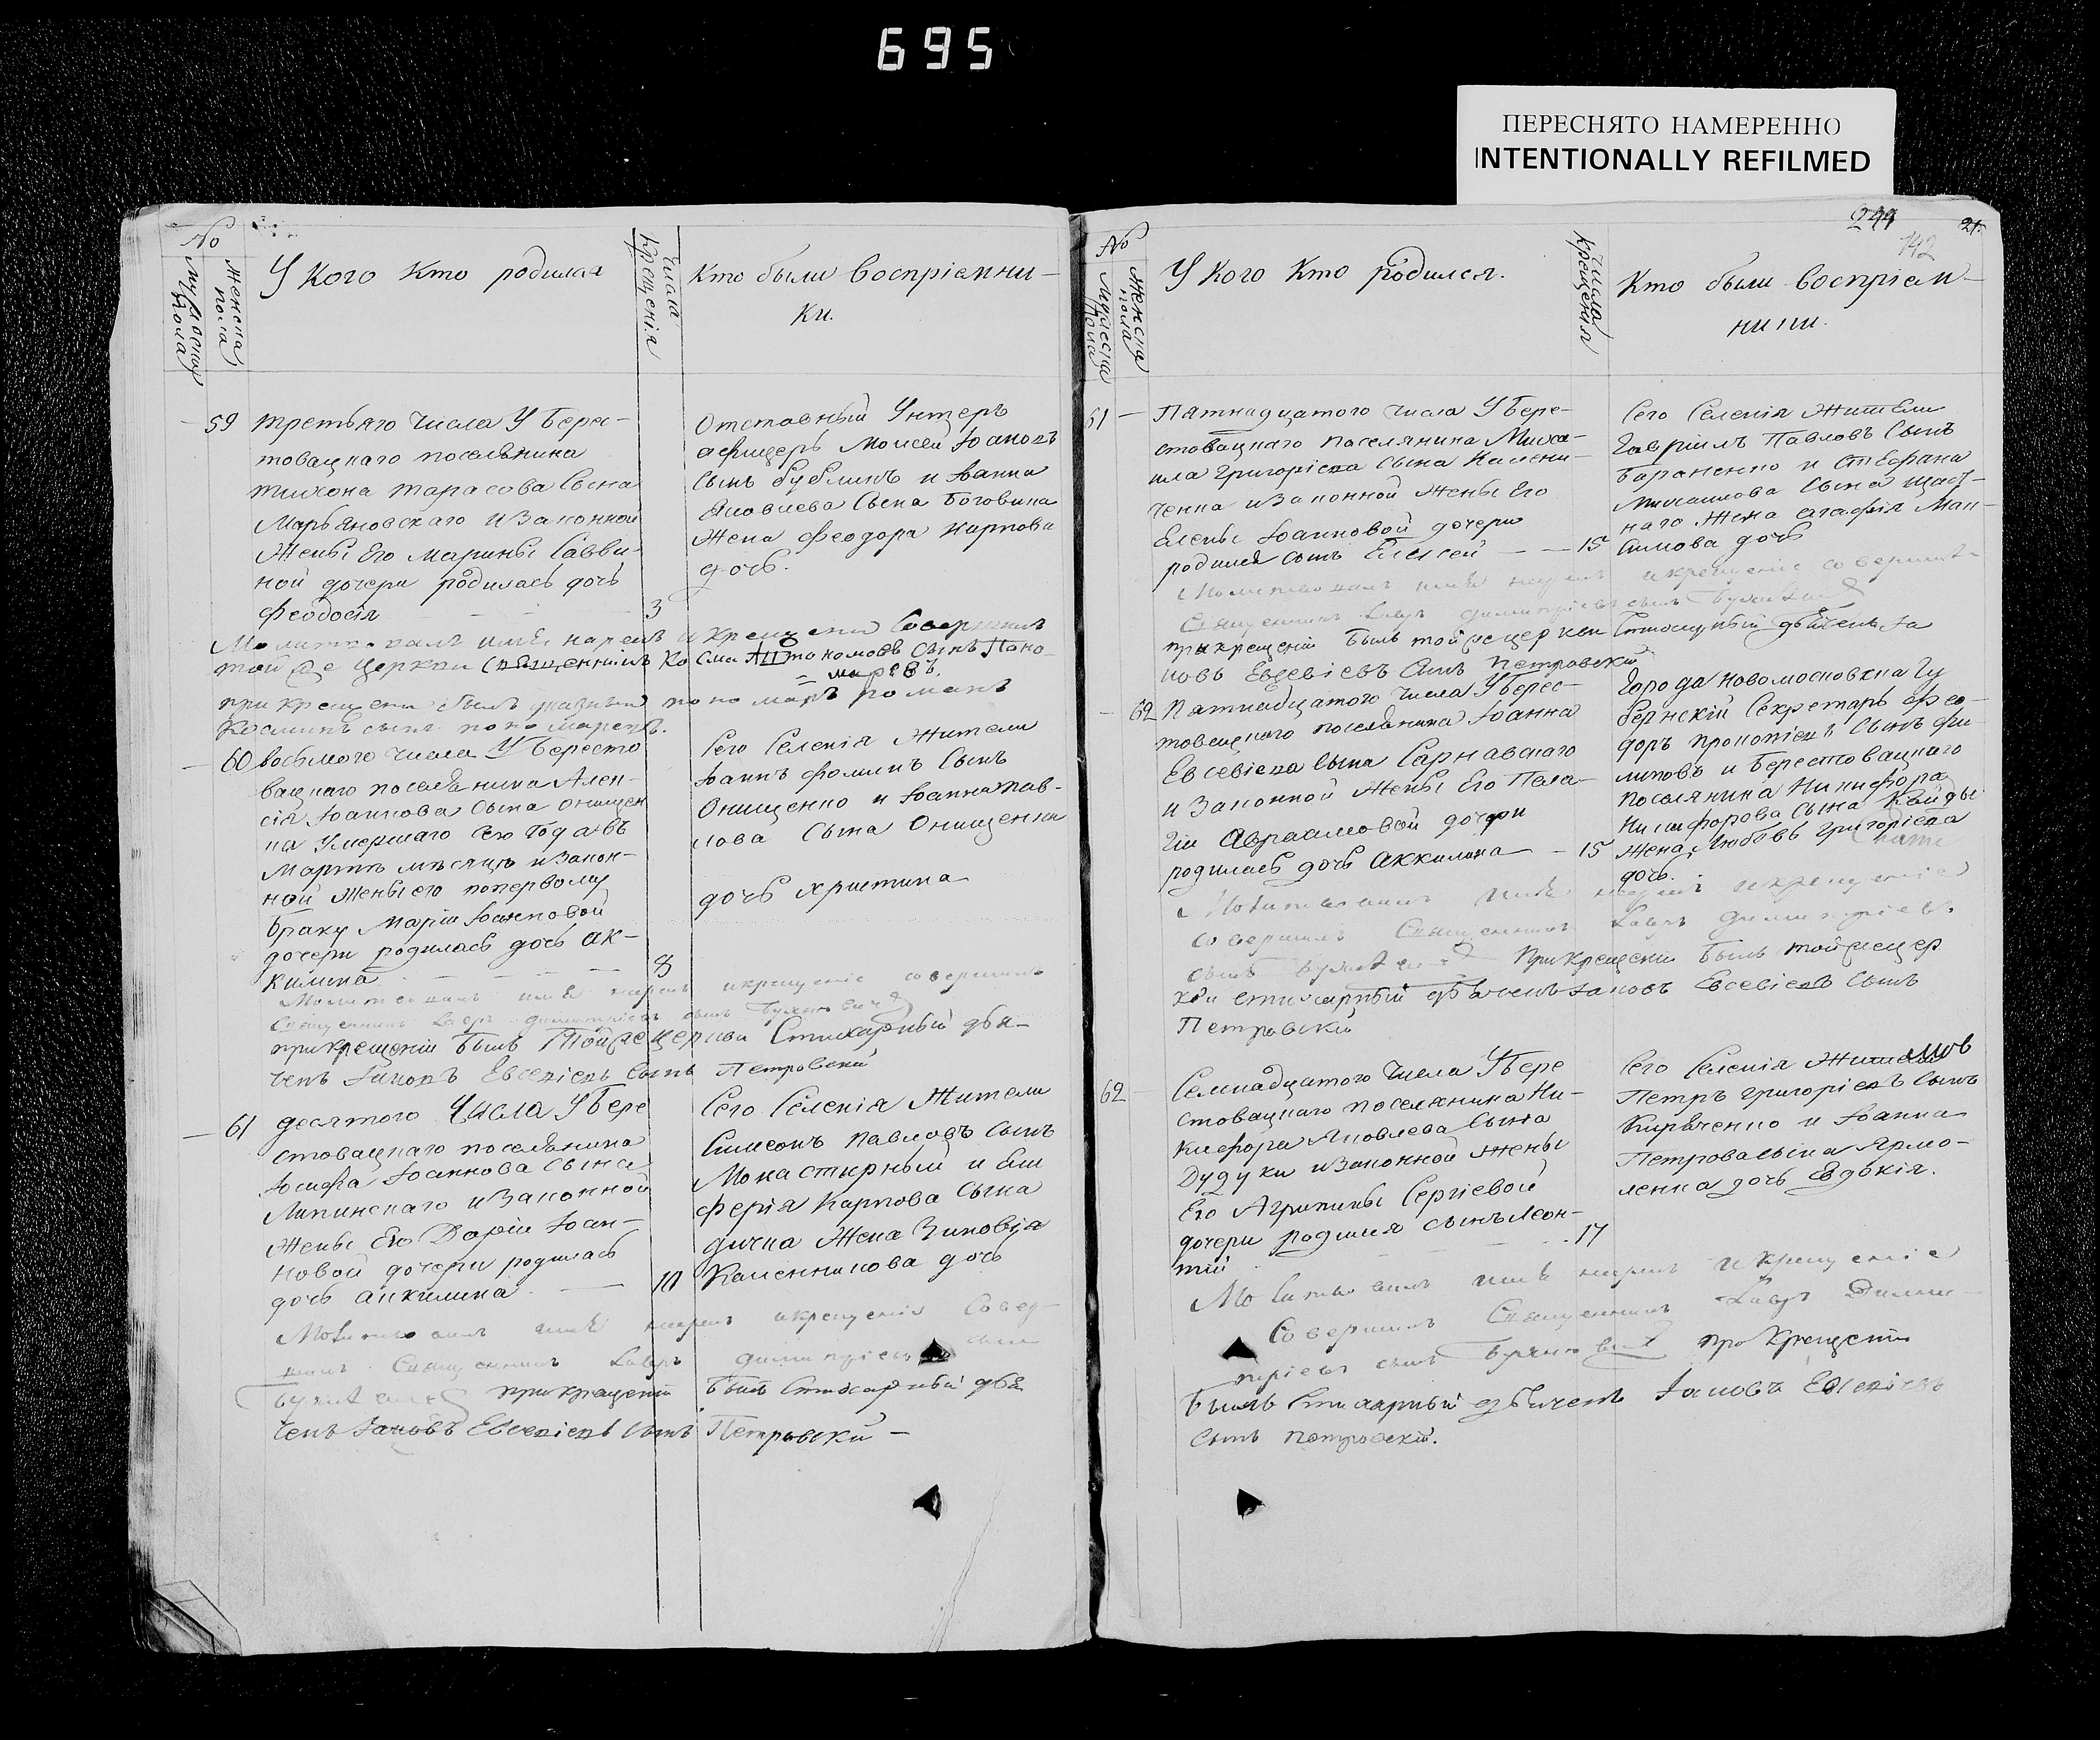 695
ПЕРЕСНЯТО НАМЕРЕННО
INTENTIONALLY REFILMED
№
Мужеска пола
Женска пола
У кого кто родился
Числа крещенія
Кто были воспріемни-
ки.
59
третьяго числа У Берес-
товацкаго поселянина
Тихона Тарасова сына
Марьяновскаго и законной
жены его Марины Савви-
ной дочери родилась дочь
Феодосія
3
Отставный Унтеръ
офицеръ Моисей Іоановъ
сынъ Бубликъ и Іоанна
Яковлева сына Боговина
жена Феодора Карпова
дочь.
Молитвовалъ имя нарекъ и крещеніе совершилъ
той же церкви священникъ Косма сынъ Поно-
маревъ.
при крещеніи былъ пономарь Романъ
Косминъ сынъ Пономаревъ.
60
восьмого числа У Бересто
вацкаго поселянина Алек-
сія Іоаннова сына Онищен
ка умершаго сего года въ
Мартѣ мѣсяцѣ и закон-
ной жены его по первому
браку Маріи Іоанновой
дочери родилась дочь Ак-
килина
8
Сего селенія жители
Іоаннъ Фоминъ сынъ
Онищенко и Іоанна Пав-
лова сына Онищенка
дочь Христина
Молитвовалъ имя нарекъ и крещеніе совершилъ
Священникъ Лавръ Димитріевъ сынъ
при крещеніи былъ той же церкви Стихарный дья-
чекъ Іаковъ Евсевіевъ сынъ Петровскій
61
десятого числа У Бере
стовацкаго поселянина
Іосифа Іоаннова сына
Липинскаго и законной
жены его Даріи Іоан-
новой дочери родилась
дочь Аккилина
10
Сего селенія жители
Симеонъ Павловъ сынъ
Монастырный и Ели
ферія Карпова сына
жена Зиновія
Калинникова дочь
Молитвовалъ имя нарекъ и крещеніе совер-
шилъ Священникъ Лавръ Димитріевъ сынъ
при крещеніи былъ Стихарный дья
чекъ Іаковъ Евсевіевъ сынъ Петровскій
244
21.
142
№
Мужеска пола
Женска пола
У кого кто родился.
Числа крещенія
Кто были воспріем-
ники.
61
Пятнадцатого числа У Бере-
стовацкаго поселянина Миха-
ила Григоріева сына Калени-
ченка и законной жены его
Елены Іоанновой дочери
родился сынъ Елисей
15
Сего селенія жители
Гавріилъ Павловъ сынъ
Бараненко и Стефана
Михаилова сына
жена Агафія Мак-
симова дочь
Молитвовалъ имя нарекъ и крещеніе совершилъ
Священникъ Лавръ Димитріевъ сынъ
при крещеніи былъ той же церкви Стихарный дьячекъ Іа
ковъ Евсевіевъ сынъ Петровскій
62
Пятнадцатого числа У Берес-
товецкого поселянина Іоанна
Евсевіева сына Сарнавскаго
и законной жены его Пела-
гіи Авраамовой дочери
родилась дочь Аккилина
15
Города Новомосковска Гу
бернскій Секретарь Фео-
доръ Прокопіевъ сынъ Фи
липовъ и Берестовацкаго
поселянина Никифора
Никифорова сына Кайды
жена Любовь Григоріева
дочь.
Молитвовалъ имя нарекъ и крещеніе
совершилъ Священникъ Лавръ Димитріевъ
сынъ При крещеніи былъ той же цер
кви стихарный дьячекъ Іаковъ Евсевіевъ сынъ
Петровскій
62
Семнадцатого числа У Бере
стовацкаго поселянина Ни-
кифора Яковлева сына
Дудуки и законной жены
его Агрипины Сергіевой
дочери родился сынъ Леон-
тій
17
Сего селенія
Петръ Григоріевъ сынъ
Кириченко и Іоанна
Петрова сына Ярмо-
ленка дочь Евдокія.
Молитвовалъ имя нарекъ и крещеніе
совершилъ Священникъ Лавръ Дими-
тріевъ сынъ при крещеніи
былъ стихарный дьячекъ Іаковъ Евсевіевъ
сынъ Петровскій.